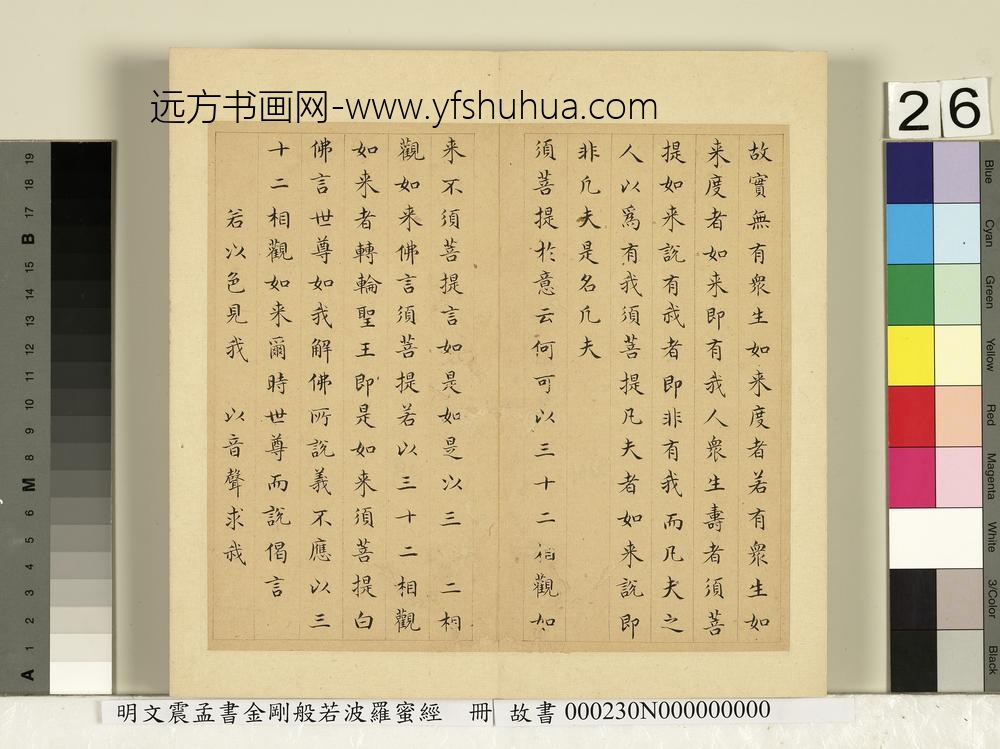 远方书画网-www.yfshuhua.com
故實無有衆生如来度者若有衆生如
来度者如来即有我人衆生壽者須菩
提如来說有我者即非有我而凡夫之
人以爲有我須菩提凡夫者如来說即
非凡夫是名凡夫
須菩提於意云何可以三十二相觀如
来不須菩提言如是如是以三 二相
觀如来佛言須菩提若以三十二相觀
如来者轉輪聖王即是如来須菩提白
佛言世尊如我解佛所說義不應以三
十二相觀如来爾時世尊而說偈言
若以色見我 以音聲求我
明文震孟書金剛般若波羅蜜經 冊 故書 000230N000000000
26
Blue
Cyan
Green
Yellow
Red
Magenta
White
3/Color
Black
A 1 2 3 4 5 6 M 8 9 10 11 12 13 14 15 B 17 18 19